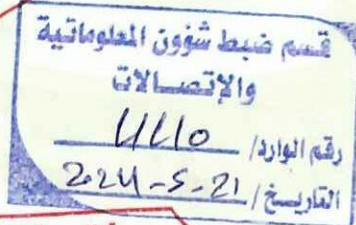 قسم ضبط شؤون المعلوماتية
والإتصالات
رقم الوارد/
التاريخ/ 2024-5-21